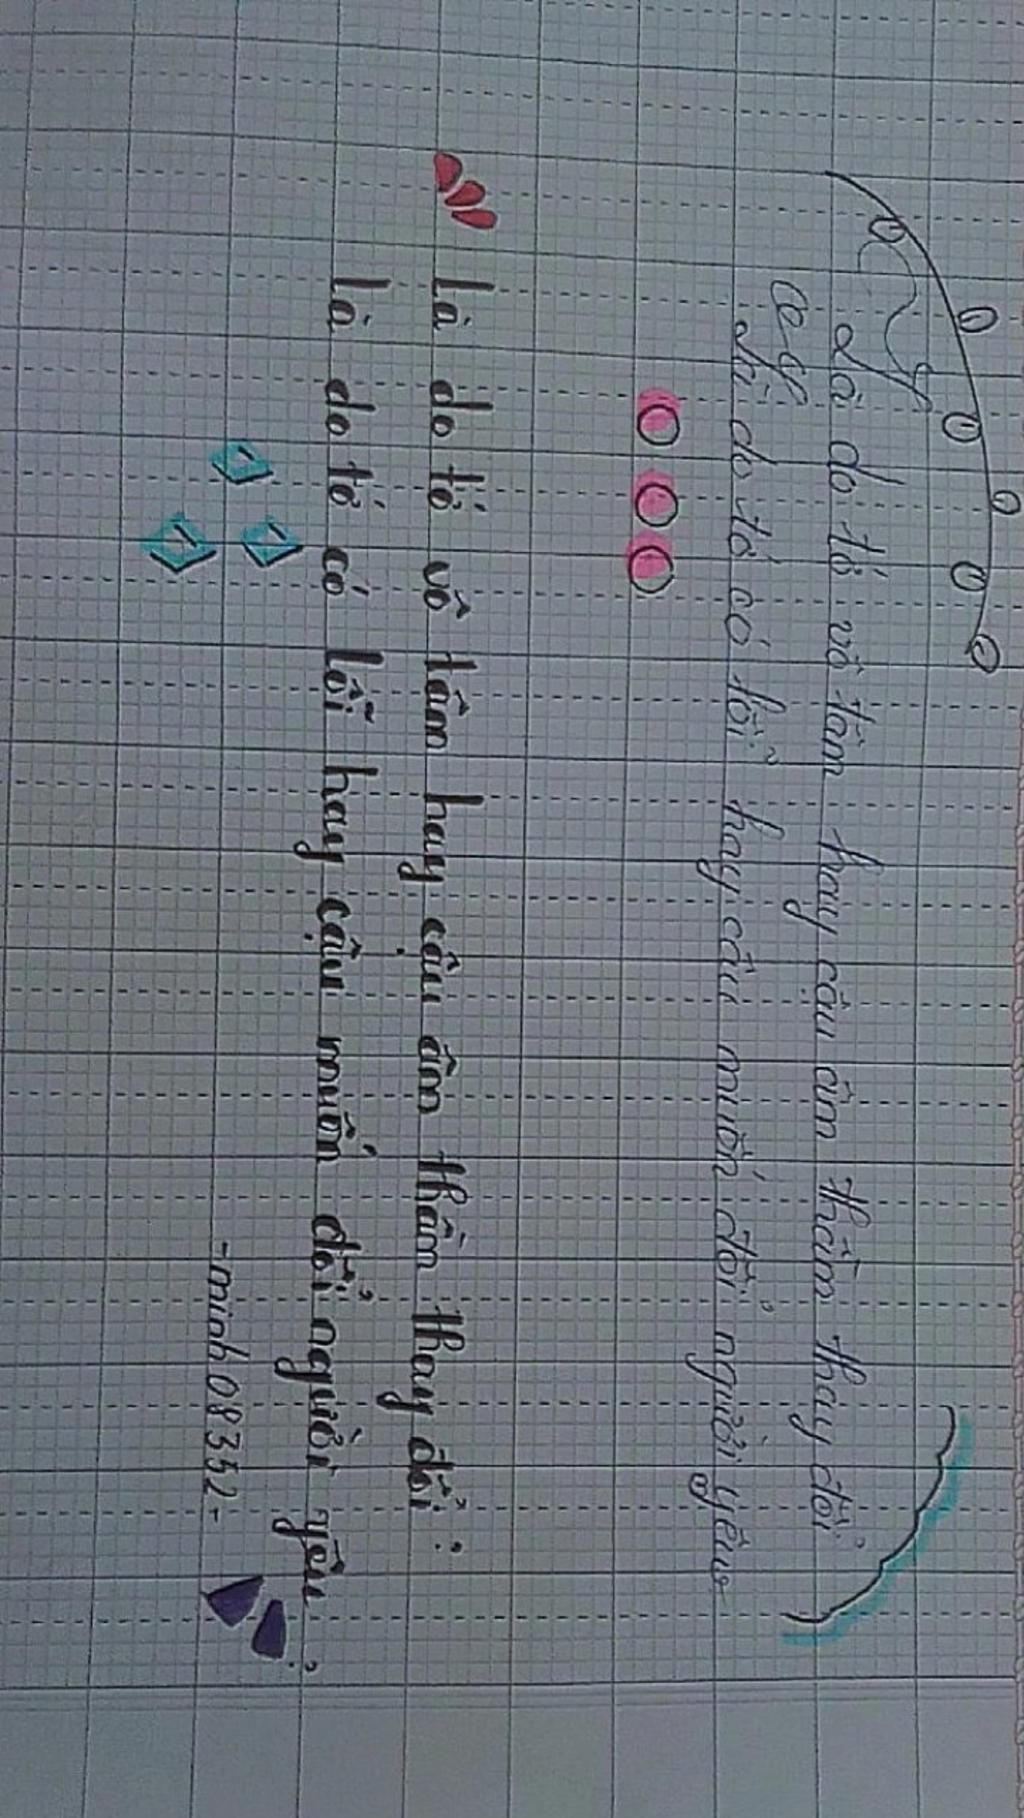 Là do tớ vô tâm hay cậu âm thầm thay đổi
Là do tớ có lỗi hay cậu muốn đổi người yêu
Là do tớ vô tâm hay cậu âm thầm thay đổi?
Là do tớ có lỗi hay cậu muốn đổi người yêu?
-minh08352-